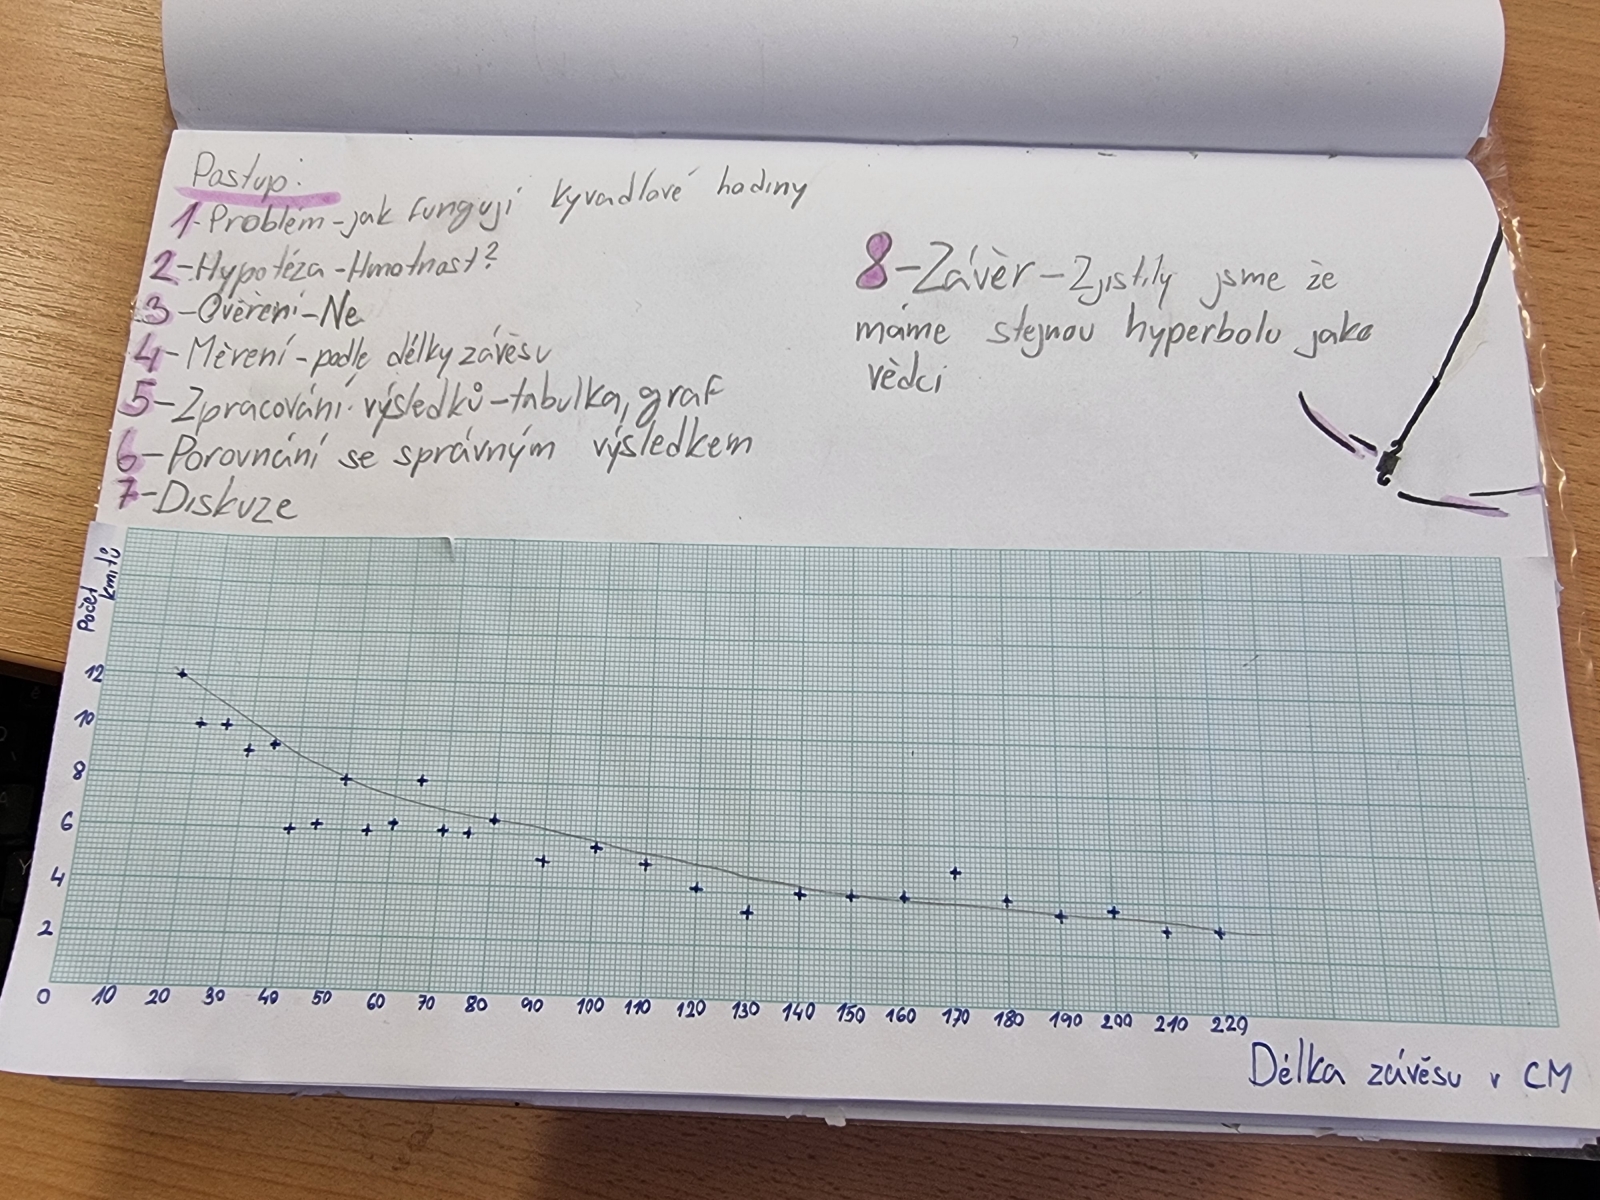 Postup:
1-Problém-jak fungují kyvadlové hodiny
2-Hypotéza-Hmotnost?
3-Ověření-Ne
4-Měření-podle délky závěsu
5-Zpracování výsledků-tabulka, graf
6-Porovnání se správným výsledkem
7-Diskuze
8-Závěr-Zjistily jsme že
máme stejnou hyperbolu jako
vědci
Počet
kmitů
12
10
8
6
4
2
0 10 20 30 40 50 60 70 80 90 100 110 120 130 140 150 160 170 180 190 200 210 220
Délka závěsu v CM